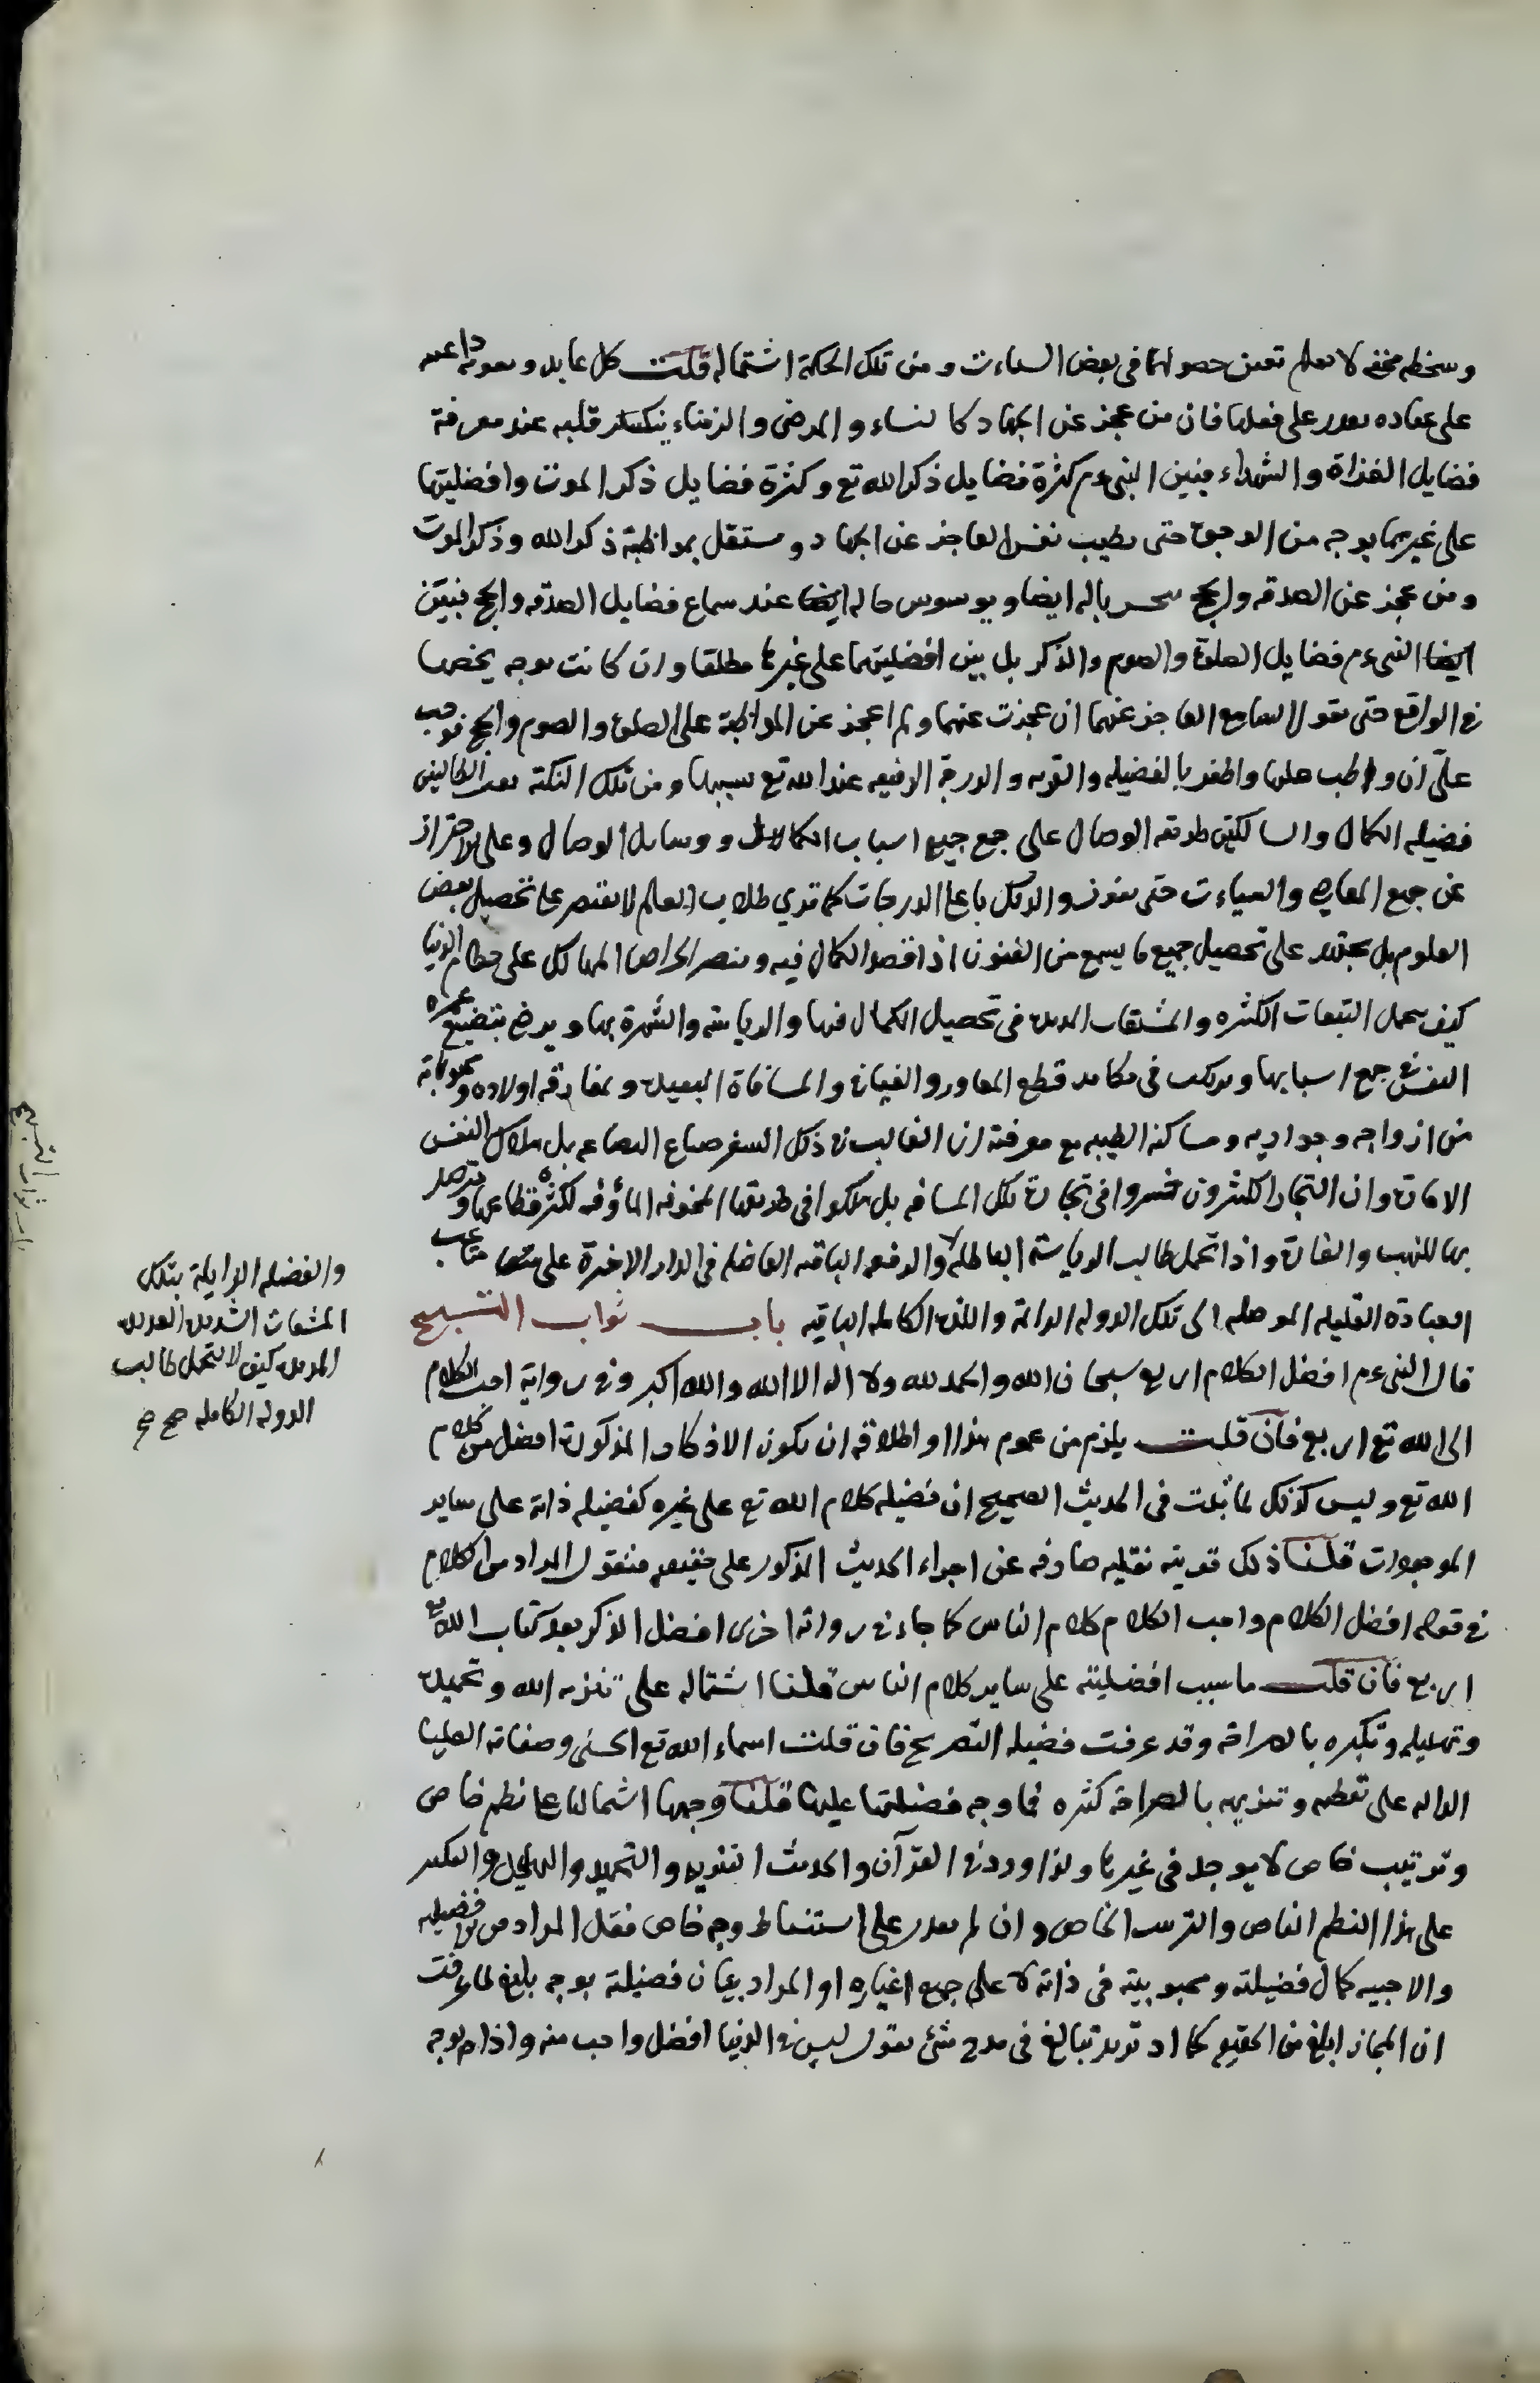 وسخطه مخفيه لا يعلم تعين حصولها فى بعض الساعات ومن تلك الحكمة اشتماله قلت كل عابد داعيه
على عباده يقدر على فعلها فان من عجز عن الجهاد كالنساء والمرضى والزمناء ينكسر قلبه عند معرفة
فضايل الغزاة والشهداء فبين النبى عم كثرة فضايل ذكر الله تع وكثرة فضايل ذكر الموت وافضليتها
على غيرهما بوجه من الوجوه حتى يطيب نفس العاجز عن الجهاد و يستقل بمواظبة ذكر الله وذكر الموت
ومن عجز عن الصدقه والحج باله ايضا ويوسوس حاله ايضا عند سماع فضايل الصدقه والحج فبين
ايضا النبى عم فضايل الصلوة والصوم والذكر بل بين افضليتها على غيرها مطلقا وان كانت بوجه يخصها
فى الواقع حتى يقول السامع العاجز عنهما ان عجزت عنهما ولم اعجز عن المواظبة على الصلوة والصوم والحج فوجب
علىّ ان واظب عليها واظفر بالفضيله والقربه والدرجة الرفيعه عند الله تع بسببها ومن تلك النكتة الطالبين
فضيله الكمال والسالكين طريقه الوصال على جمع جميع اسباب الكمال و وسايل الوصال وعلى الاحتراز
عن جميع المعايب والسيئات حتى يفوزوا لذلك باعلى الدرجات كما ترى طلاب العالم لا يقتصر على تحصيل بعض
العلوم بل يجتهد على تحصيل جميع ما يسمع من الفنون اذا قصد الكمال فيه المهالك على حطام الدنيا
كيف يحمل التبعات الكثيره والمشقات المديده فى تحصيل الكمال فيها والرياسته والشهرة بها ويرضى بتضييع عمره
النفس فى جمع اسبابها ويرتكب فى مكامد قطع المفاوز والفيافى والمسافاة البعيده ومفارقه اولاده ومحبوباته
من ازواجه وجواريه ومساكنه الطيبه مع معرفته ان الغالب فى ذلك السفر ضياع البضاعه بل هلاك النفس
وان التجار الكثيرون خسروا فى تجارة تلك المسافه بل هلكوا فى طريقها المخوفه المأوفه لكثرة قطاعها
بها للنهب والغارة واذا تحمل طالب الرياسته الباطله والرفعه الباقيه الفاضله فى الدار الاخرة على متاعب
العبادة القليله الموصله الى تلك الدوله الدائمة واللذة الكامله الباقيه باب ثواب التسبيح
قال النبى عم افضل الكلام اربع سبحان الله والحمد لله ولا اله الا الله والله اكبر وفى رواية احب الكلام
الى الله تع اربع فان قلت يلزم من عموم هذا او اطلاقه ان يكون الاذكار المذكورة افضل من كلام
الله تع وليس كذلك لما ثبت فى الحديث الصحيح ان فضيله كلام الله تع على غيره كفضيله ذاته على ساير
الموجودات قلنا ذلك قرينه نقليه صارفه عن اجراء الحديث المذكور على حقيقته فنقول المراد من الكلام
فى قوله افضل الكلام واحب الكلام كلام الناس كما جاء فى رواية اخرى افضل الذكر بعد كتاب الله تع
اربع فان قلت ما سبب افضليته على ساير كلام الناس قلنا اشتماله على تنزيه الله وتحميده
وتهليله وتكبيره بالصراحه وقد عرفت فضيله التصريح فان قلت اسماء الله تع الحسنى وصفاته العليا
الداله على تعظيمه وتنزيهه بالصراحه كثيره فما وجه فضيلتها عليها قلنا وجهها اشتمالها على نظم خاص
وترتيب خاص لا يوجد فى غيرها ولذا ورد فى القرآن والحديث التنزيه والتحميد والتهليل والتكبير
على هذا النظم الخاص والترتيب الخاص وان لم يقدر على استنباط وجه خاص فقل المراد من فضيله
والاحبيه كمال فضيلته ومحبوبيته فى ذاته لا على جميع اغياره او المراد بيان فضيلته بوجه بليغ لما عرفت
ان المجاز ابلغ من الحقيقه كما اذ تريد تبالغ فى مدح شئ تقول ليس فى الدنيا افضل واحب منه واذا لم يوجه
والفضله الزايلة بتلك
المشقات الشديده العديده
المديده كيف لا يتحمل طالب
الدوله الكامله صح صح
باب ثواب التسبيح